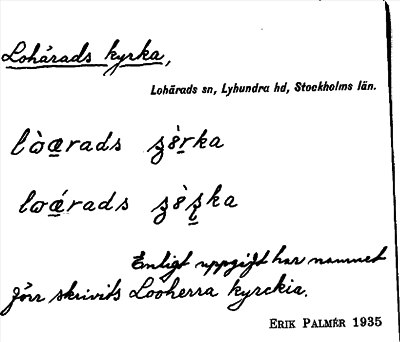 Lohärads kyrka,
Lohärads sn, Lyhundra hd, Stockholms län.
Enligt uppgift har namnet
förr skrivits Looherra kyrckia.
ERIK PALMÉR 1935